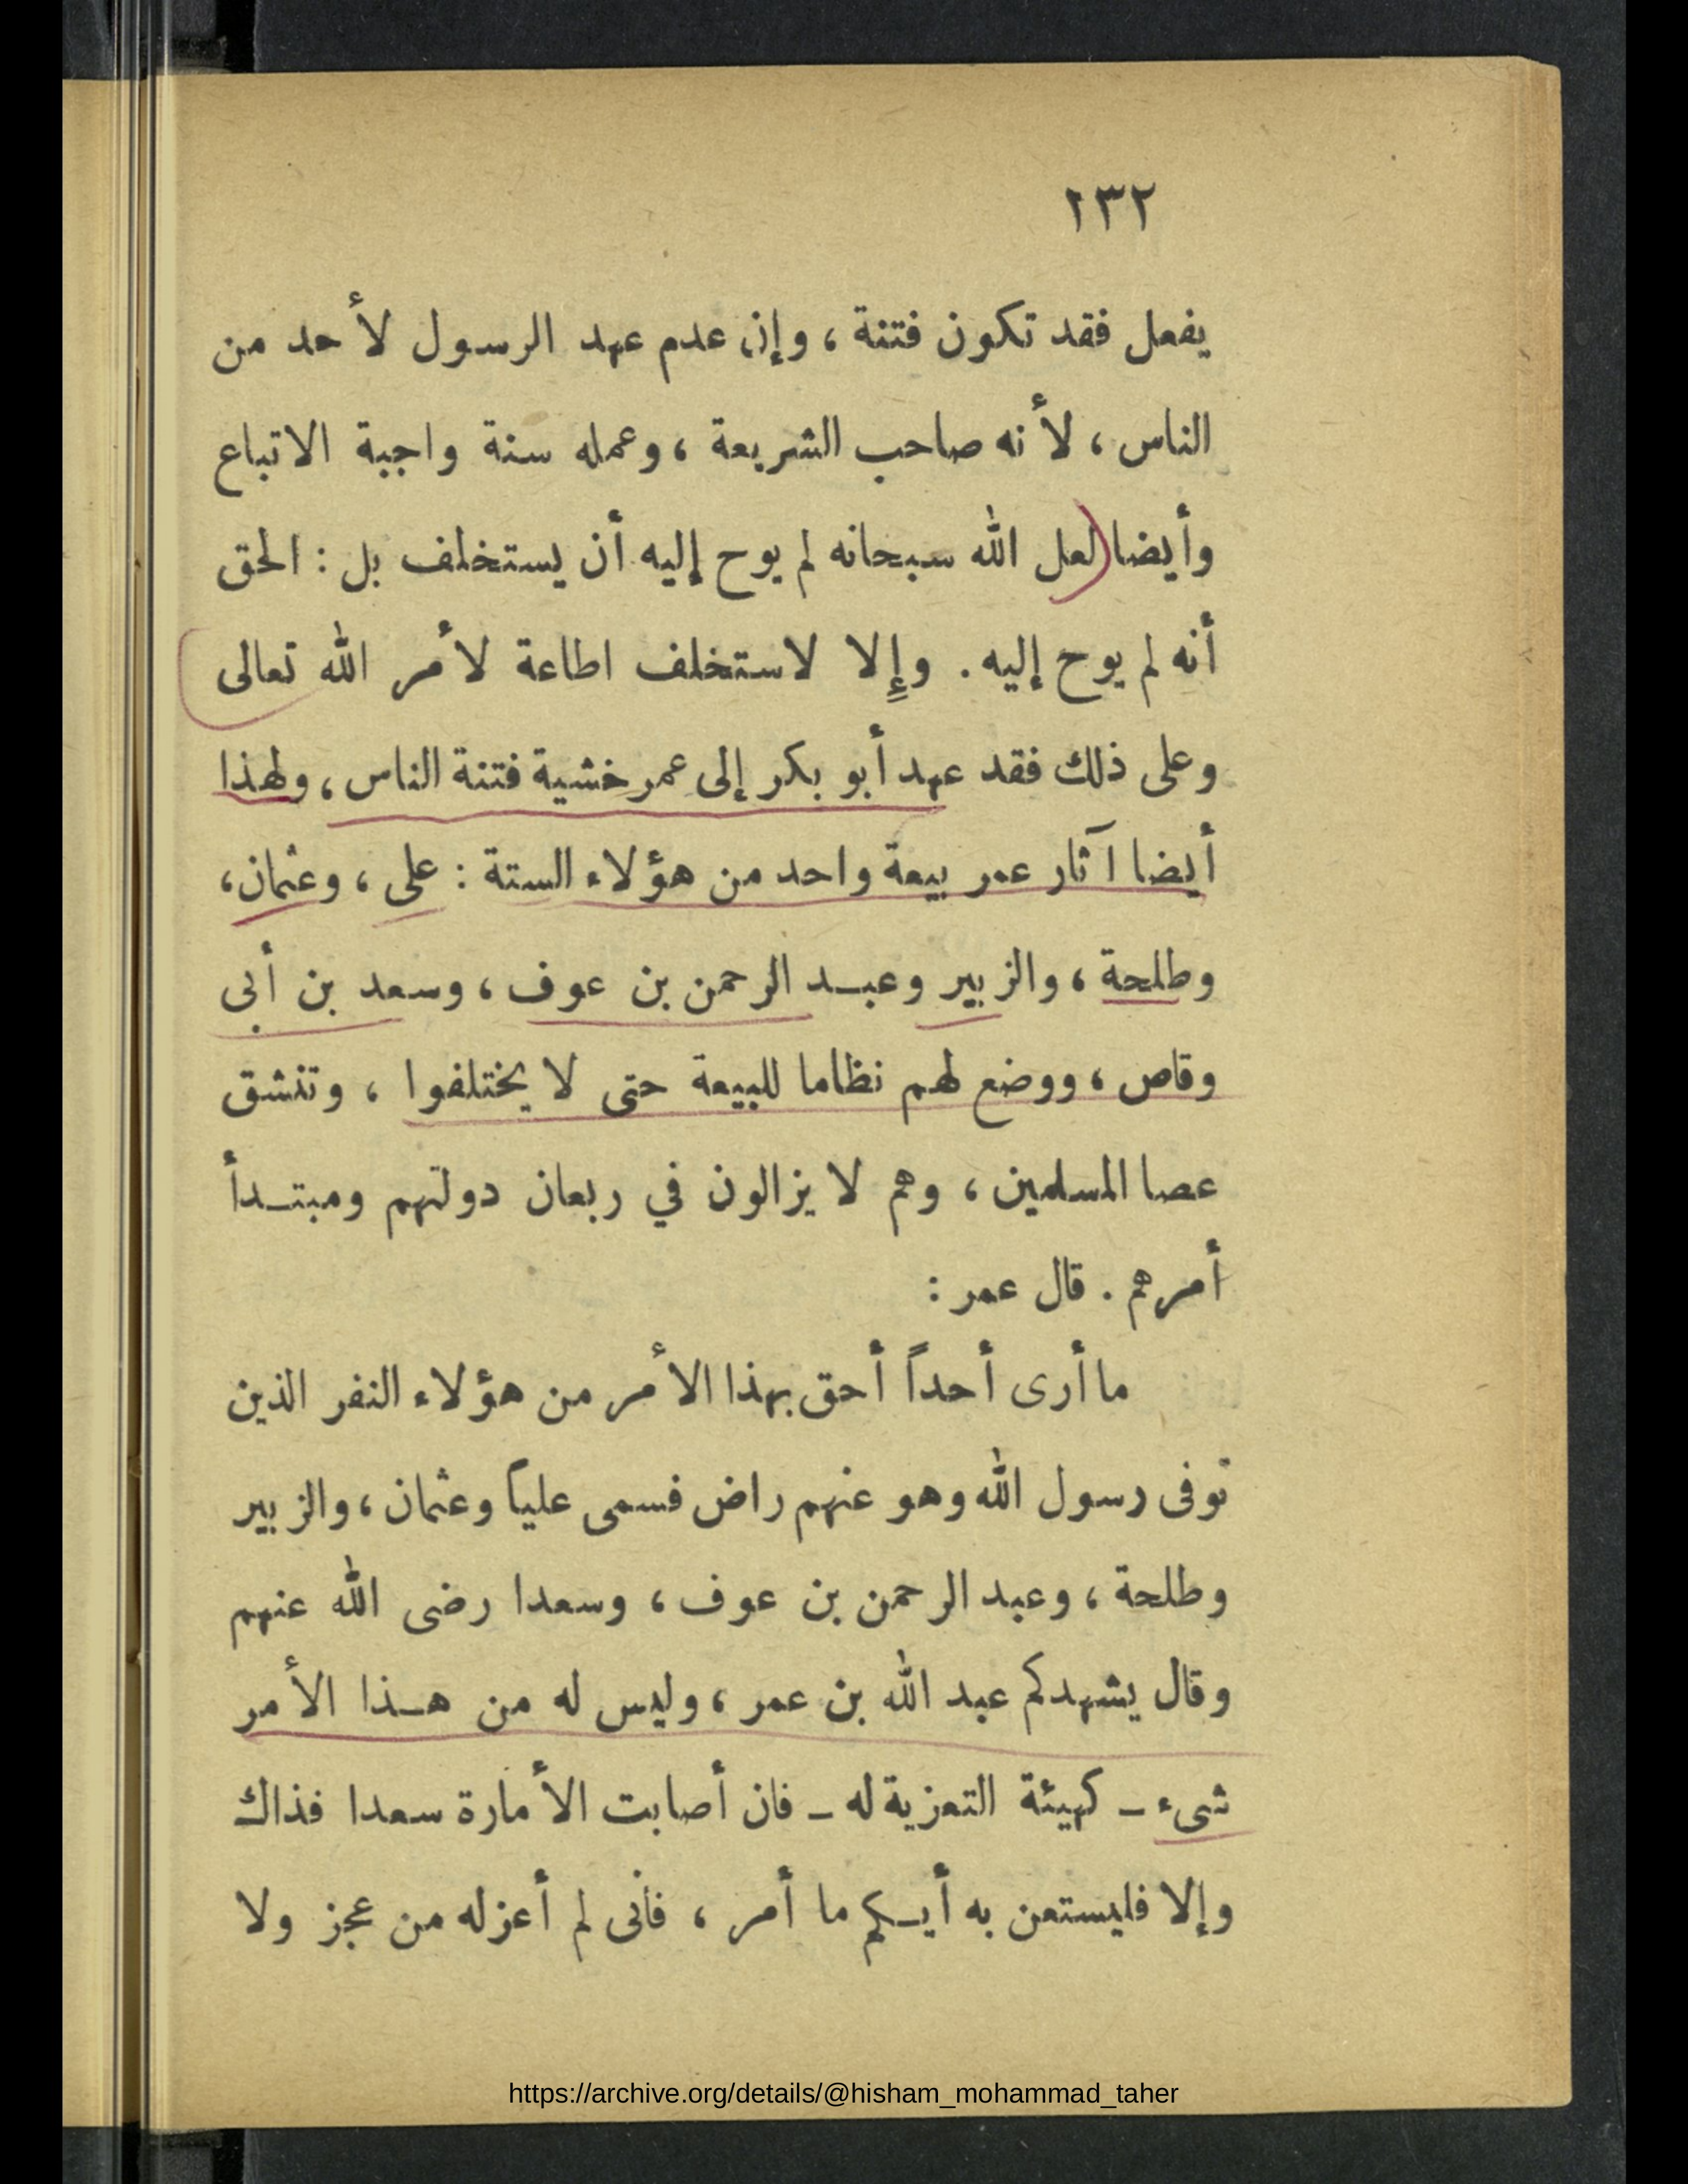 ١٣٢
يفعل فقد تكون فتنة ، وإن عدم عهد الرسول لأحد من
الناس ، لأنه صاحب الشريعة ، وعمله سنة واجبة الاتباع
وأيضا (لعل الله سبحانه لم يوح إليه أن يستخلف بل : الحق
أنه لم يوح إليه . وإلا لاستخلف اطاعة لأمر الله تعالى
وعلى ذلك فقد عهد أبو بكر إلى عمر خشية فتنة الناس ، ولهذا
أيضا آثار عمر بيعة واحد من هؤلاء الستة : على ، وعثمان ،
وطلحة ، والزبير وعبد الرحمن بن عوف ، وسعد بن أبى
وقاص ، ووضع لهم نظاما للبيعة حتى لا يختلفوا ، وتنشق
عصا المسلمين ، وهم لا يزالون في ربعان دولتهم ومبتدأ
أمرهم . قال عمر :
ما أرى أحداً أحق بهذا الأمر من هؤلاء النفر الذين
توفى رسول الله وهو عنهم راض فسمى علياً وعثمان ، والزبير
وطلحة ، وعبد الرحمن بن عوف ، وسعدا رضى الله عنهم
وقال يشهدكم عبد الله بن عمر ، وليس له من هذا الأمر
شىء – كهيئة التعزية له – فان أصابت الأمارة سعدا فذاك
وإلا فليستعن به أيكم ما أمر ، فأنى لم أعزله من عجز ولا
https://archive.org/details/@hisham_mohammad_taher